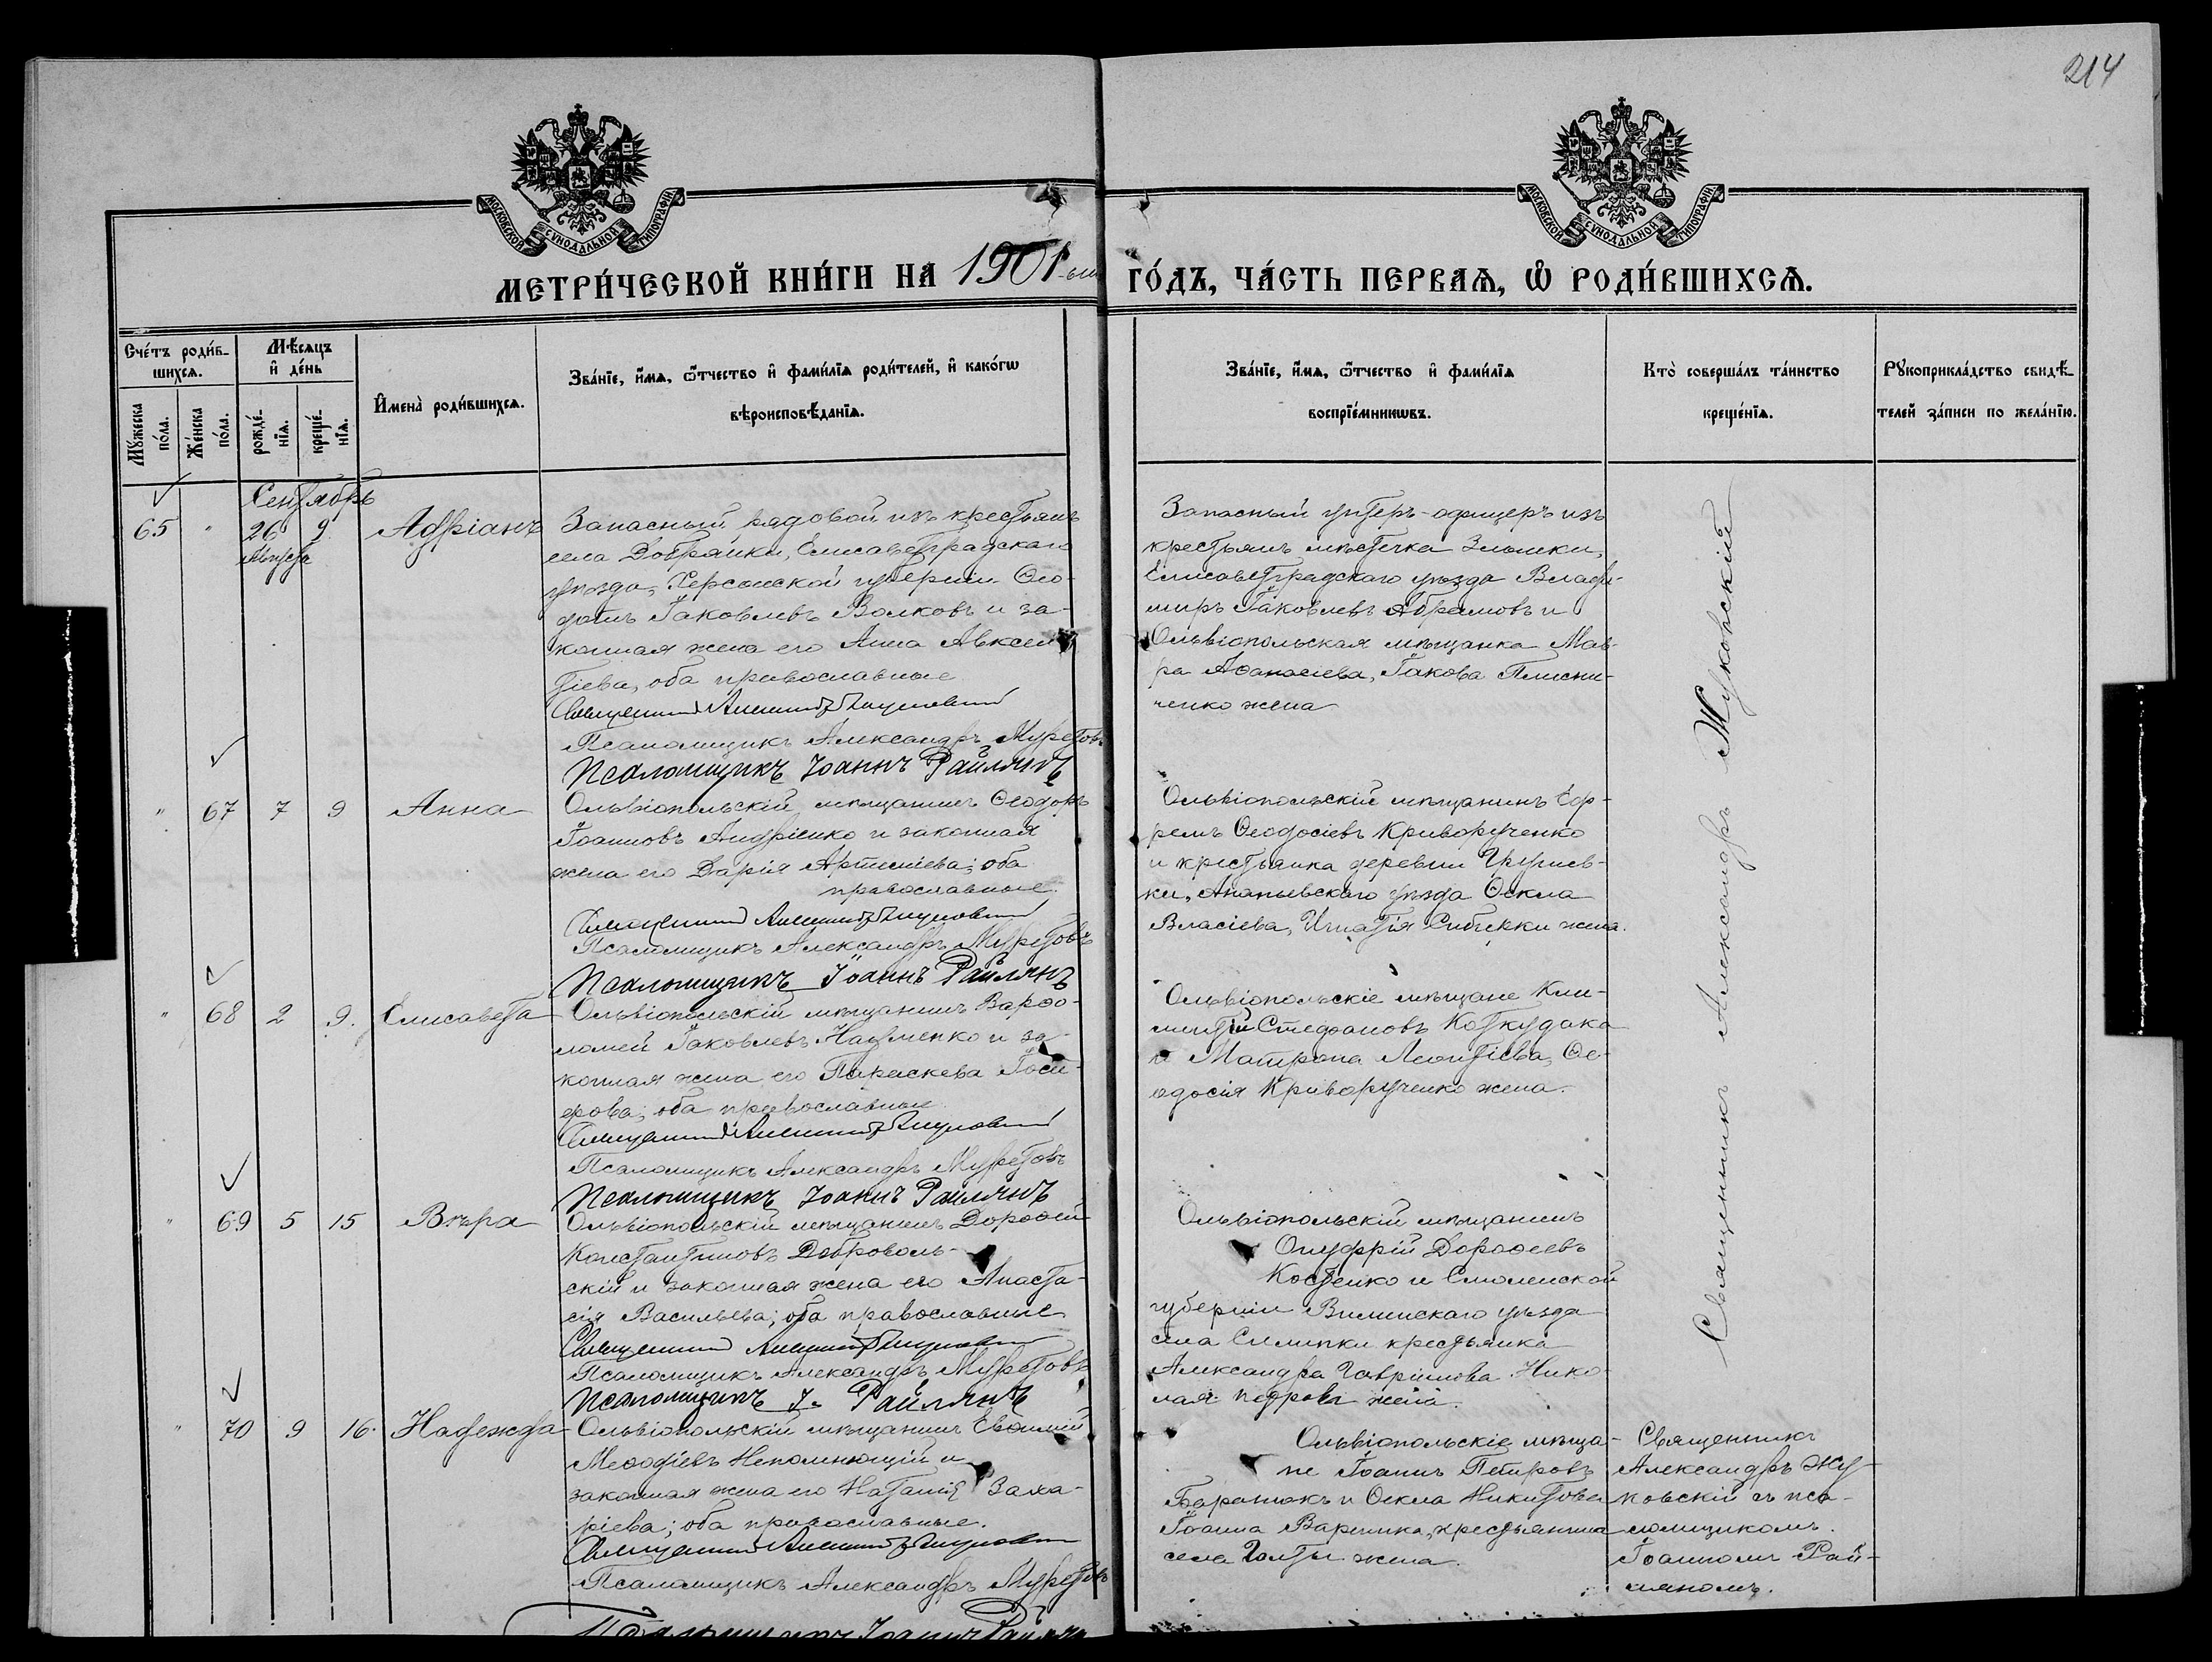 214
МОСКОВСКОЙ СѴНОДАЛЬНОЙ ТИПОГРАФІИ
МОСКОВСКОЙ СѴНОДАЛЬНОЙ ТИПОГРАФІИ
МЕТРИ́ЧЕСКОЙ КНИ́ГИ НА 1901-ый ГО́ДЪ, ЧА́СТЬ ПЕРВАѦ, Ѽ РОДИ́ВШИХСѦ.
Сче́тъ роди́в-
шихсѧ.
Мꙋ́жеска
по́ла.
Же́нска
по́ла.
Мѣ́сѧцъ
и҆ де́нь
рожде́-
нїѧ.
креще́-
нїѧ.
И҆мена̀ роди́вшихсѧ.
Зва́нїе, и҆́мѧ, ѻ҆́тчество и҆ фами́лїѧ роди́телей, и҆ како́гѡ
вѣроисповѣ́данїѧ.
Зва́нїе, и҆́мѧ, ѻ҆́тчество и҆ фами́лїѧ
воспрїе́мникѡвъ.
Кто̀ соверша́лъ та́инство
креще́нїѧ.
Рꙋкоприкла́дство свидѣ́-
телей за́писи по жела́нїю.
Сентябрь
65 " 26 9 Адріанъ
Августа
Запасный рядовой изъ крестьянъ
села Добрянки, Елисаветградскаго
уѣзда, Херсонской губерніи Ѳео-
дотъ Іаковлевъ Волковъ и за-
конная жена его Анна Авксен
тіева, оба православные
Священникъ Александръ Жуковскій
Псаломщикъ Александръ Муретовъ
Псаломщикъ Іоаннъ Райлянъ
Запасный унтеръ-офицеръ изъ
крестьянъ мѣстечка Злынки,
Елисаветградскаго уѣзда Влади-
миръ Іаковлевъ Абрамовъ и
Ольвіопольская мѣщанка Мав-
ра Аѳанасіева, Іакова Плисни-
ченко жена
Священникъ Александръ Жуковскій
" 67 7 9 Анна
Ольвіопольскій мѣщанинъ Ѳеодоръ
Іоанновъ Андріенко и законная
жена его Дарія Артеміева; оба
православные.
Священникъ Александръ Жуковскій
Псаломщикъ Александръ Муретовъ
Псаломщикъ Іоаннъ Райлянъ
Ольвіопольскій мѣщанинъ Еф-
ремъ Ѳеодосіевъ Криворученко
и крестьянка деревни
ки, Ананьевскаго уѣзда Ѳекла
Власіева, Игнатія жена.
" 68 2 9. Елисавета
Ольвіопольскій мѣщанинъ Варѳо-
ломей Іаковлевъ Науменко и за-
конная жена его Параскева Іоси-
фова; оба православные
Священникъ Александръ Жуковскій
Псаломщикъ Александръ Муретовъ
Псаломщикъ Іоаннъ Райлянъ
Ольвіопольскіе мѣщане Кли-
ментій Стефановъ Коткудака
и Матрона Леонтіева, Ѳе-
одосія Криворученко жена.
" 69 5 15 Вѣра
Ольвіопольскій мѣщанинъ Дороѳей
Константиновъ Доброволь-
скій и законная жена его Анаста-
сія Васильева; оба православные
Священникъ Александръ Жуковскій
Псаломщикъ Александръ Муретовъ
Псаломщикъ І. Райлянъ
Ольвіопольскій мѣщанинъ
Онуфрій Дороѳеевъ
Костенко и Смоленской
губерніи уѣзда
села крестьянка
Александра Гавріилова Нико-
лая жена.
" 70 9 16. Надежда
Ольвіопольскій мѣщанинъ Евѳимій
Меѳодіевъ Непомнющій и
законная жена его Наталія Заха-
ріева; оба православные.
Священникъ Александръ Жуковскій
Псаломщикъ Александръ Муретовъ
Псаломщикъ Іоаннъ Райлянъ
Ольвіопольскіе мѣща-
не Іоаннъ Петровъ
Баранюкъ и Ѳекла Никитова
Іоанна крестьянина
села Голты жена.
Священникъ
Александръ Жу-
ковскій съ пса-
ломщикомъ
Іоанномъ Рай-
ляномъ.